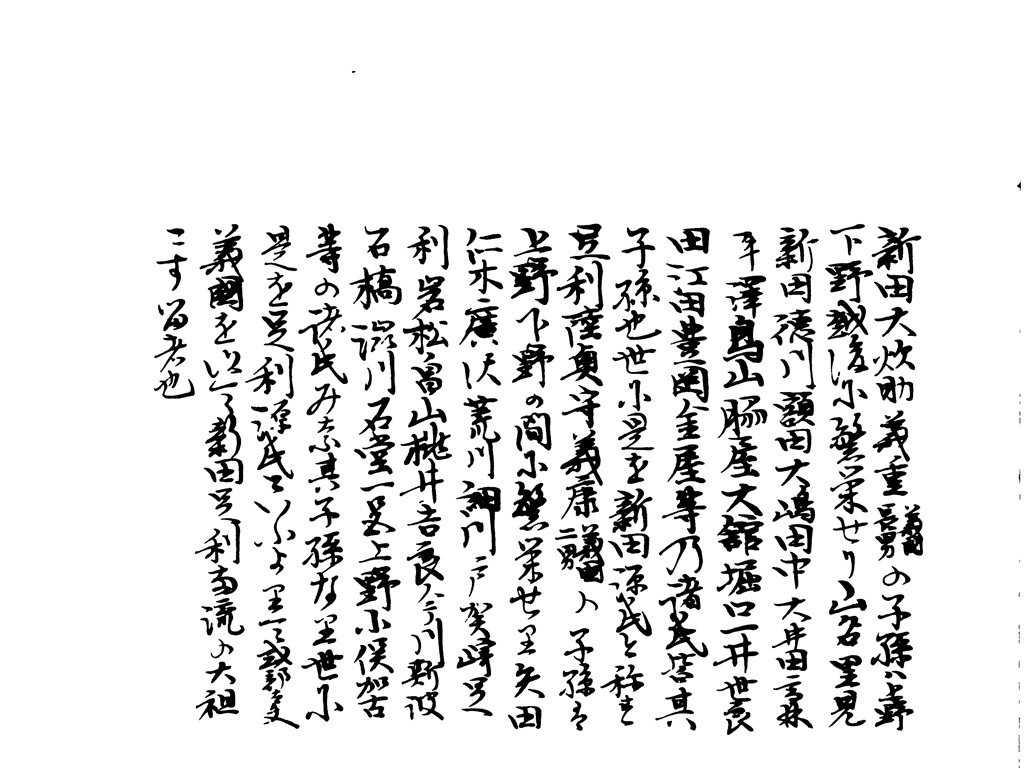 新田大炊助義重義国長男の子孫ハ上野
下野越後に繁栄せり山名里見
新田徳川額田大嶋田中大井田
平澤鳥山脇屋大舘堀口一井世良
田江田豊岡金屋等乃諸氏皆其
子孫也世に是を新田源氏と称す
足利陸奥守義康義国二男の子孫は
上野下野の間に繁栄せり矢田
仁木廣沢荒川細川戸賀崎足
利岩松畠山桃井吉良今川斯波
石橋澁川石堂一色上野小俣加古
等の諸氏みな其子孫なり世に
是を足利源氏といふよりて
義国を以て新田足利両流の大祖
とす